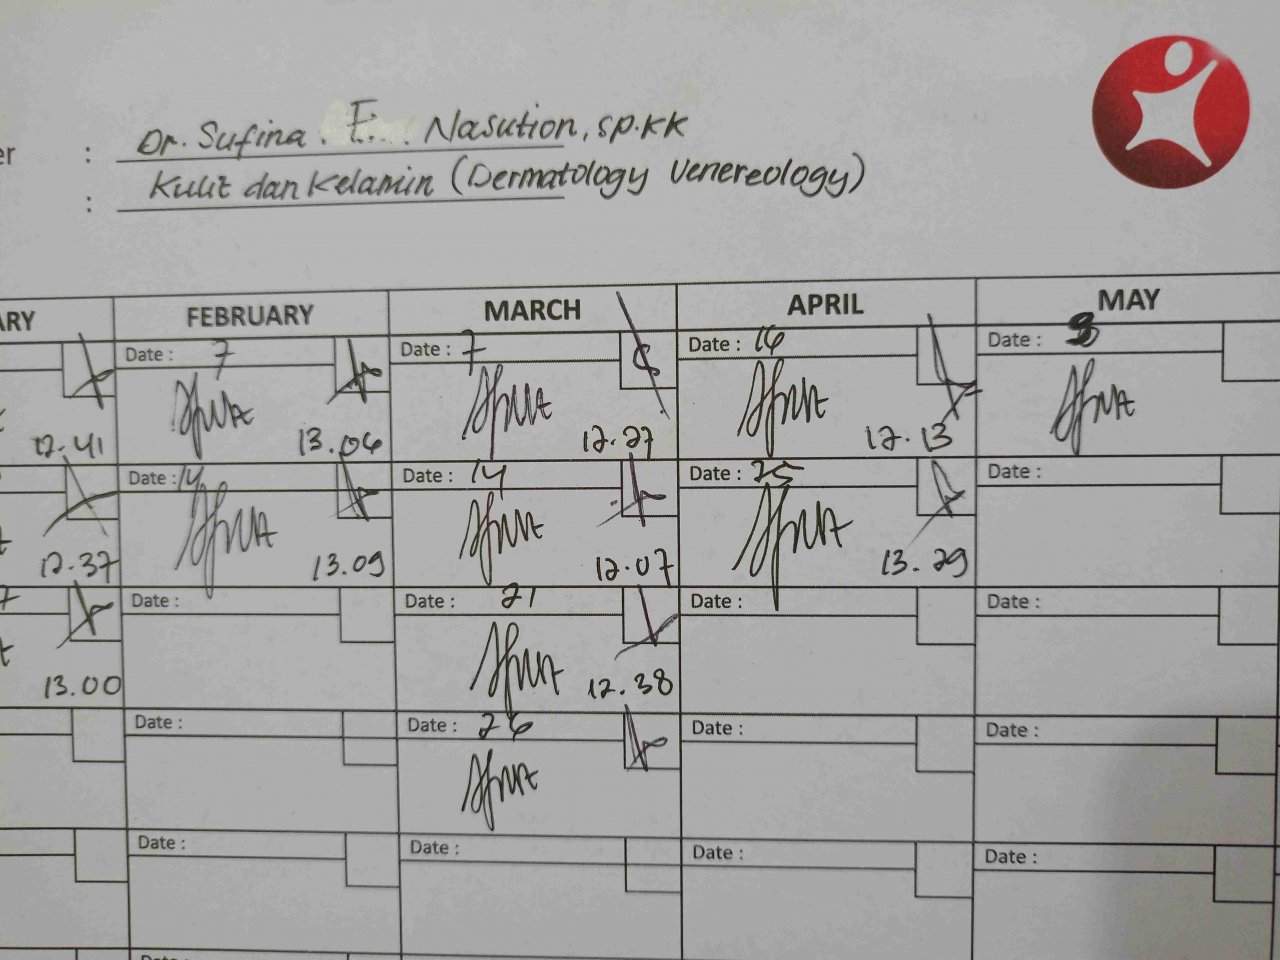 er : Dr. Sufina. F... Nasution, Sp.KK
: Kulit dan Kelamin (Dermatology Venereology)
ARY FEBRUARY MARCH APRIL MAY
Date : 7 Date : 7 Date : 16 Date : 8
12.41 13.04 12.27 12.13
Date : 14 Date : 14 Date : 25 Date :
12.37 13.09 12.07 13.29
7 Date : Date : 21 Date : Date :
13.00 12.38
Date : Date : 26 Date : Date :
Date : Date : Date : Date :
Date :